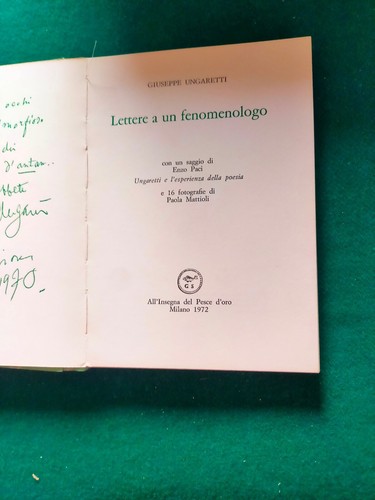 occhi
d'antan..
1970.
GIUSEPPE UNGARETTI
Lettere a un fenomenologo
con un saggio di
Enzo Paci
Ungaretti e l'esperienza della poesia
e 16 fotografie di
Paola Mattioli
G S
All'Insegna del Pesce d'oro
Milano 1972